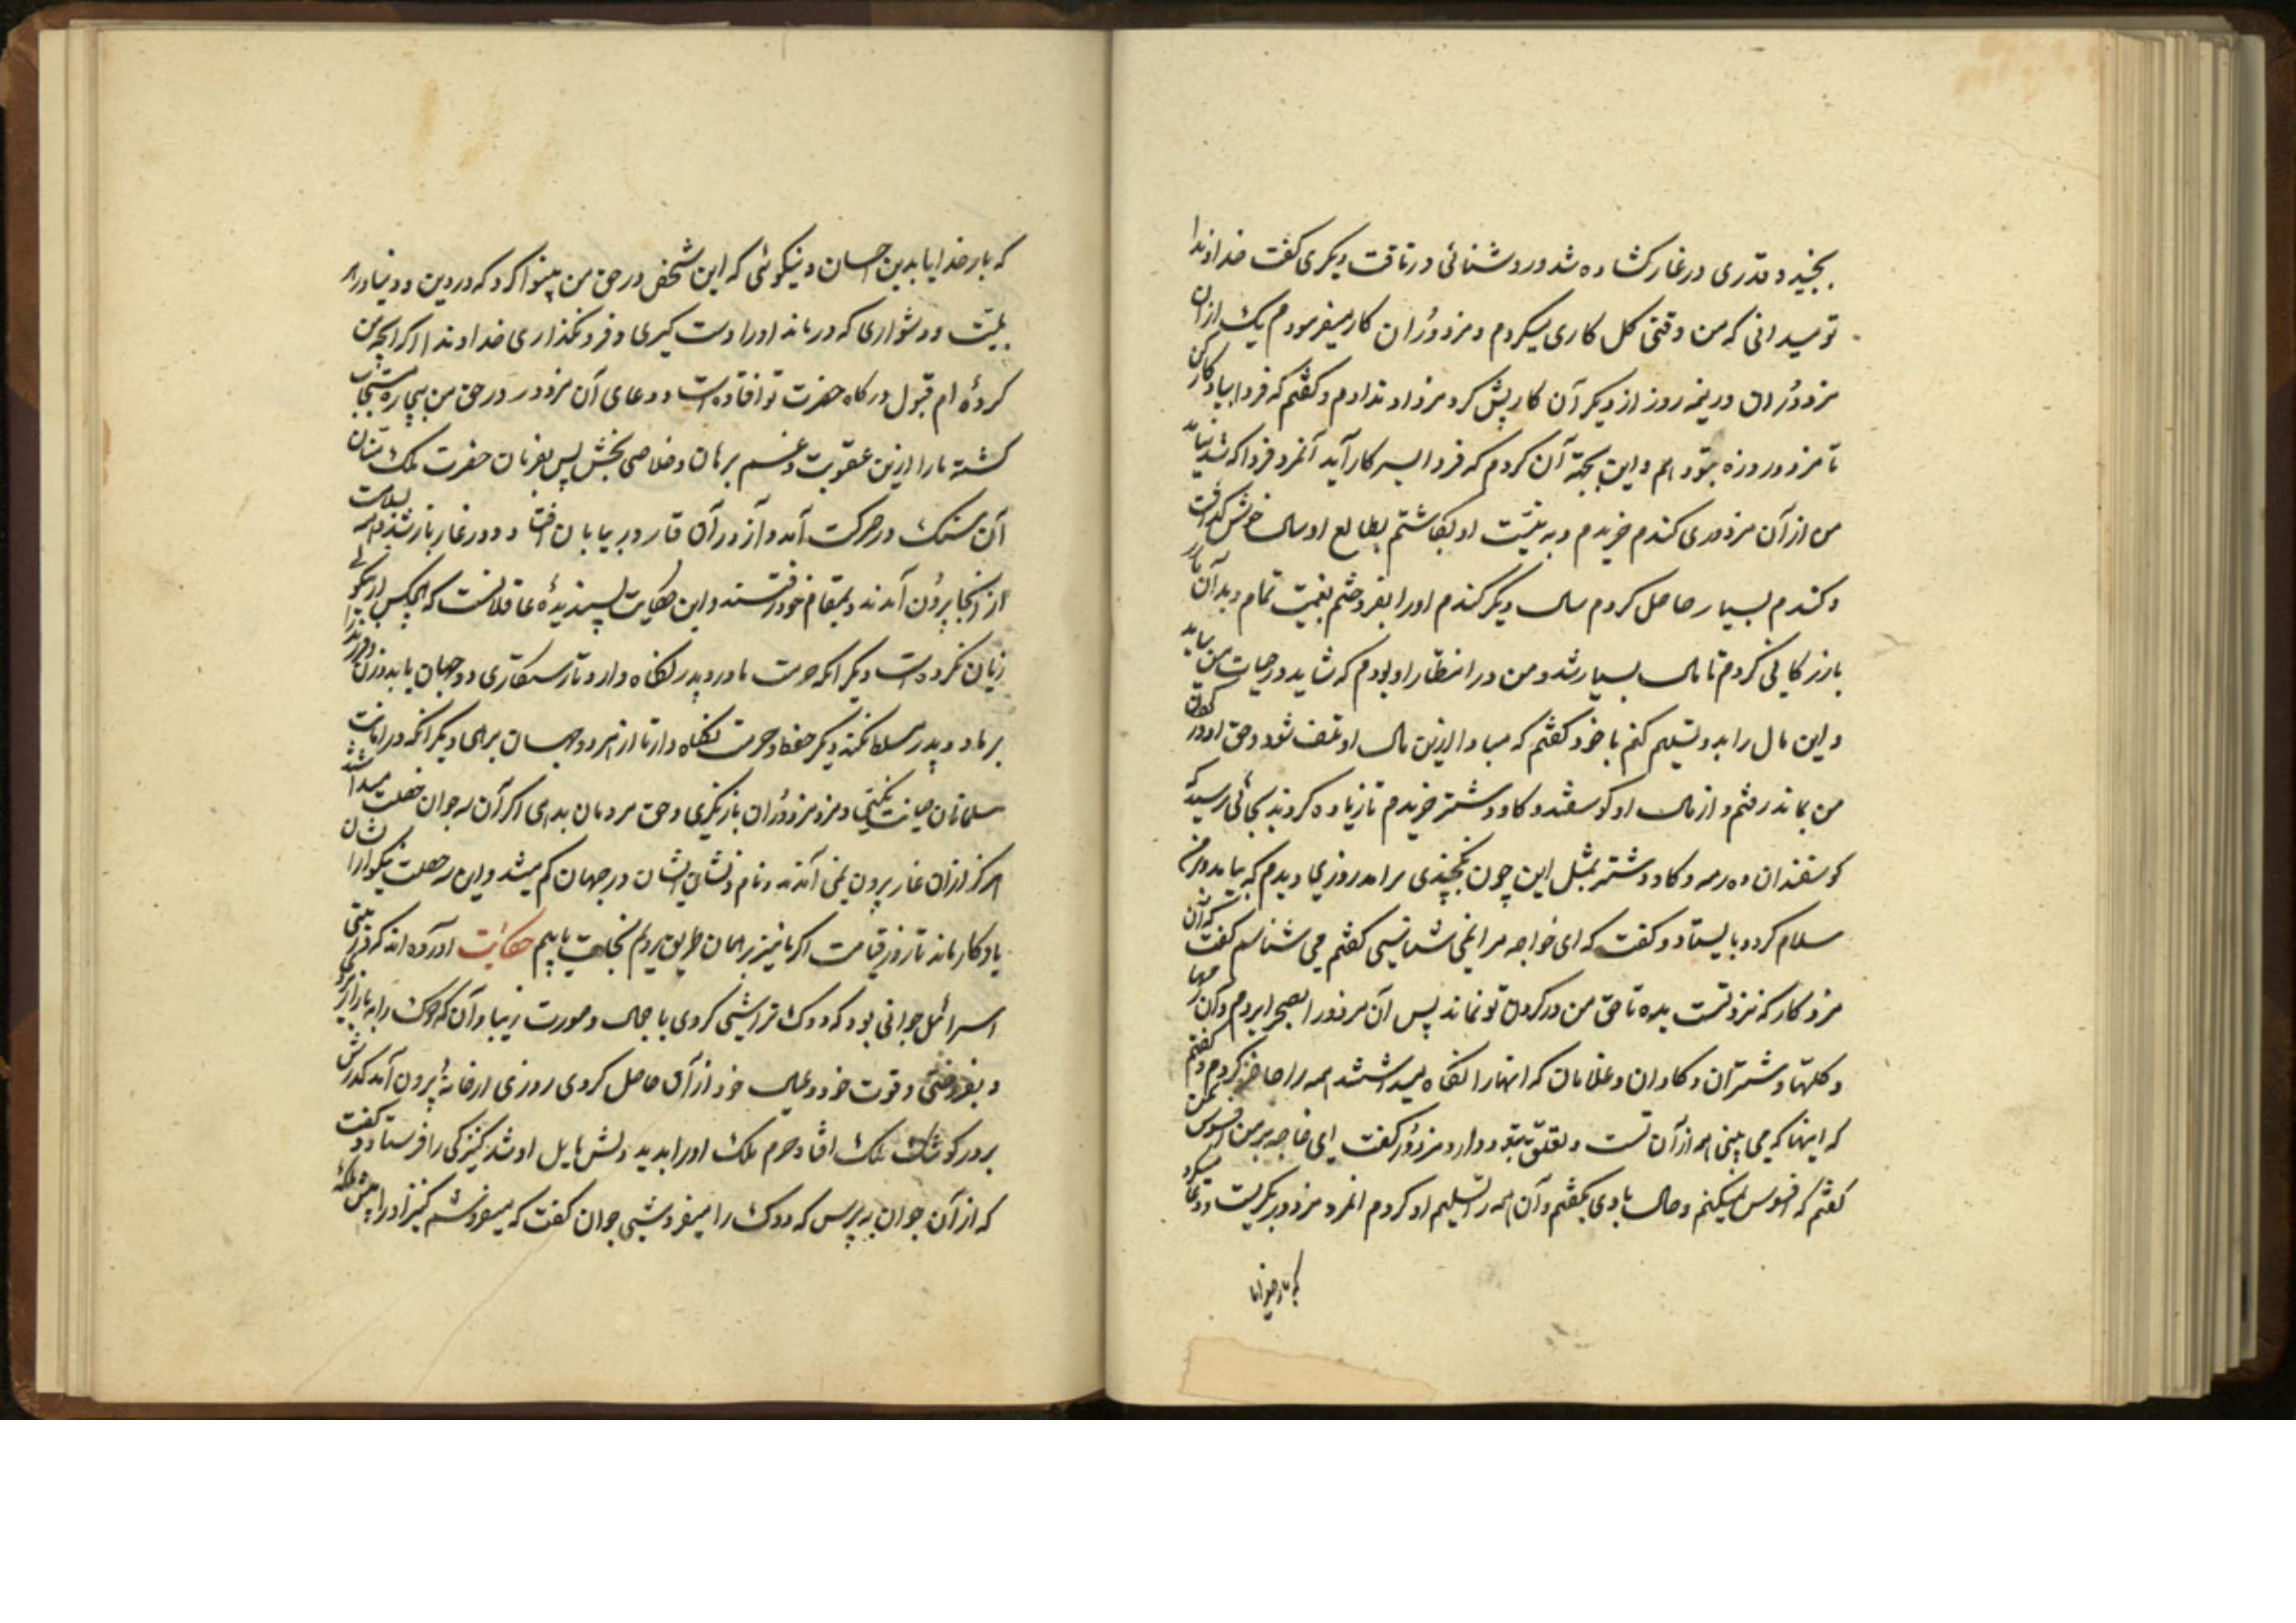 بجنبید و قدری در غار کشاده شد و روشنائی در تافت دیکری کفت خداوندا
تو میدانی که من وقتی کل کاری میکردم و مزدوران کار میفرمودم یک ازان
مزدوران در نیمه روز از دیکر آن کار پیش کرد مزد او ندادم و کفتم که فردا بیا و کار کن
تا مزد دو روزه بتو دهم و این بجهة آن کردم که فردا بسر کار آید آنمرد فردا که شد نیامد
من از آن مزدوری کندم خریدم و به نیّت او بکاشتم بطالع او سال خوش
و کندم بسیار حاصل کردم سال دیکر کندم او را بفروختم بقیمت تمام و بدآن
بازرکانی کردم تا مال بسیار شد و من در انتظار او بودم که شاید در حیات من بیاید
و این مال را بدو تسلیم کنم با خود کفتم که مبادا ازین مال او تلف شود و حق او در کردن
من بماند رفتم و از مال او کوسفند و کاو و شتر خریدم تا زیاده کردند بجائی رسید که
کوسفندان ده رمه و کاو و شتر بمثل این چون بچندی برامد روزی دیدم که بیامد و بر من
سلام کرد و بایستاد و کفت که ای خواجه مرا نمی شناسی کفتم می شناسم کفت
مزد کار که نزد تست بده تا حق من در کردن تو نماند پس آن مزدور را بصحرا بردم و آن رمها
و کلها و شتران و کاوان و غلامان که انها را نکاه میداشتند همه را حاضر کردم و کفتم
که اینها که می بینی همه از آن تست و تعلق بتو دارد مزدور کفت ای خواجه بر من افسوس مکن
کفتم که افسوس نمیکنم و حال با وی بکفتم و آن همه را تسلیم او کردم انمرد مزدور بکریست و دعا میکرد
که بار خدایا
که بار خدایا بدین احسان و نیکوئی که این شخص در حق من بینوا کرد که در دین و دنیا و در هر
بلیّت و دشواری که درماند او را دست کیری و فرو نکذاری خداوندا اکر انچه من
کردهٔ ام قبول درکاه حضرت تو افتاده است و دعای آن مزدور در حق من بیچاره مستجاب
کشته ما را ازین عقوبت و غم برهان و خلاصی بخش پس بفرمان حضرت ملک منّان
آن سنک در حرکت آمد و از در آن غار در بیابان افتاد و در غار باز شد و همه بسلامت
از انجا برون آمدند و بمقام خود رفتند و این حکایت پسندیدهٔ عاقلانست که هیچکس از نیکوئی
زیان نکرده است دیکر انکه حرمت مادر و پدر نکاه دارد تا رستکاری دو جهان یابد و زن و فرزند را
بر مادر و پدر مسلط نکند دیکر حفظ و حرمت نکاه دار تا از هر دو جهان برهی دیکر انکه در امانت
مسلمانان خیانت نکنی و مزد مزدوران باز نکیری و حق مردمان بدهی اکر آن سه جوان خصلت نمیداشتند
هرکز ازان غار برون نمی آمدند و نام و نشان ایشان در جهان کم میشد و این سه خصلت نیکو از ایشان
یادکار ماند تا روز قیامت اکر ما نیز بر همان طریق برویم نجات یابیم حکایت آورده اند که در بنی
اسرائیل جوانی بود که دوک تراشیی کردی با جمال و صورت زیبا و آن که دوک را به بازار بردی
و بفروختی و قوت خود و عیال خود از آن حاصل کردی روزی از خانهٔ برون آمد کذرش
بر در کوشک ملک افتاد حرم ملک او را بدید دلش مایل او شد کنیزکی را فرستاد و کفت
که از آن جوان به پرس که دوک را میفروشیی جوان کفت که میفروشم کنیز او را پیش ملکه